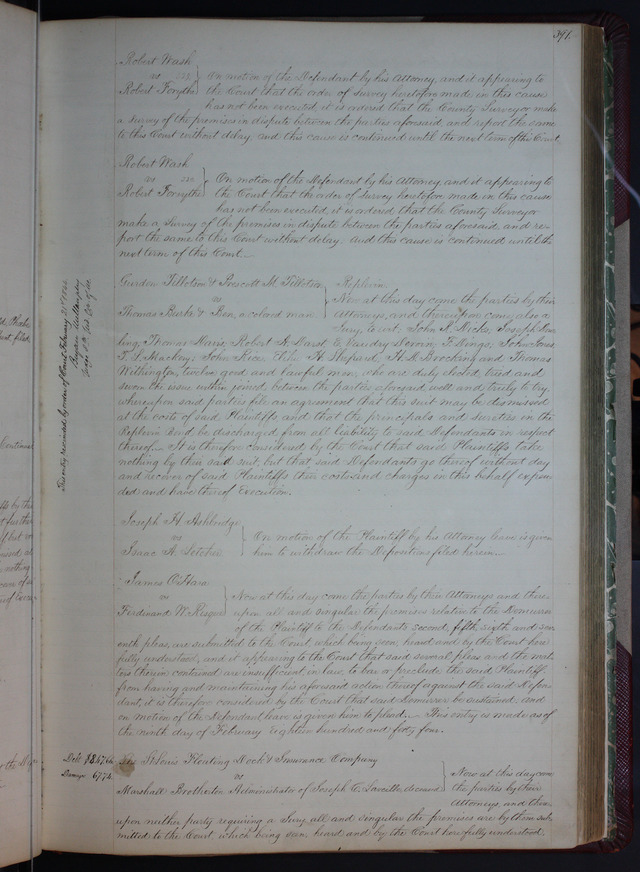 391.
Robert Wash
vs
Robert Forsythe
On motion of the Defendant by his Attorney, and it appearing to
the Court that the order of Survey heretofore made in this cause
has not been executed, it is ordered that the County Surveyor make
a survey of the premises in dispute between the parties aforesaid, and report the same
to this Court without delay. And this cause is continued until the next term of this Court.
Robert Wash
vs
Robert Forsythe
On motion of the Defendant by his Attorney, and it appearing to
the Court that the order of Survey heretofore made in this cause
has not been executed, it is ordered that the County Surveyor
make a survey of the premises in dispute between the parties aforesaid, and re-
port the same to this Court without delay. And this cause is continued until the
next term of this Court.
Gurdon Tillotson & Prescott M. Tillotson
vs
Thomas Burke & Ben, a colored man
Replevin
Now at this day come the parties by their
Attorneys, and thereupon come also a
Jury, to wit: John R. Joseph
ling, Thomas Robert A. John
T. L. Mackey, John Rice, H. Shepard, H. L. Brocking and Thomas
Withington, twelve good and lawful men, who are duly elected, tried and
sworn the issue within joined between the parties aforesaid well and truly to try,
whereupon said parties file an agreement that this suit may be dismissed
at the costs of said Plaintiffs and that the principals and securities in the
Replevin Bond be discharged from all liability to said Defendants in respect
thereof. It is therefore considered by the Court that said Plaintiffs take
nothing by their said suit, but that said Defendants go thereof without day
and recover of said Plaintiffs their costs and charges in this behalf expen-
ded and have thereof Execution.
This entry rescinded by order of Court February 21st
Joseph H. Ashbridge
vs
Isaac A. Letcher
On motion of the Plaintiff by his Attorney leave is given
him to withdraw the Depositions filed herein.
James O'Hara
vs
Ferdinand W. Risque
Now at this day come the parties by their Attorneys and there-
upon all and singular the premises relative to the Demurrer
of the Plaintiff to the Defendants second, fifth, sixth and sev-
enth pleas, are submitted to the Court which being seen, heard and by the Court here
fully understood, and it appearing to the Court that said several pleas and the mat-
ters therein contained are insufficient in law, to bar or preclude the said Plaintiff
from having and maintaining his aforesaid action thereof against the said Defen-
dant, it is therefore considered by the Court that said Demurrer be sustained, and
on motion of the Defendant leave is given him to plead. This entry is made as of
the ninth day of February eighteen hundred and forty four.
Debt
Damage 67.74
The St. Louis Floating Dock & Insurance Company
vs
Marshall Brotherton Administrator of Joseph C. deceased
Now at this day come
the parties by their
Attorneys, and there-
upon neither party requiring a Jury, all and singular the premises are by them sub-
mitted to the Court, which being seen, heard and by the Court here fully understood,